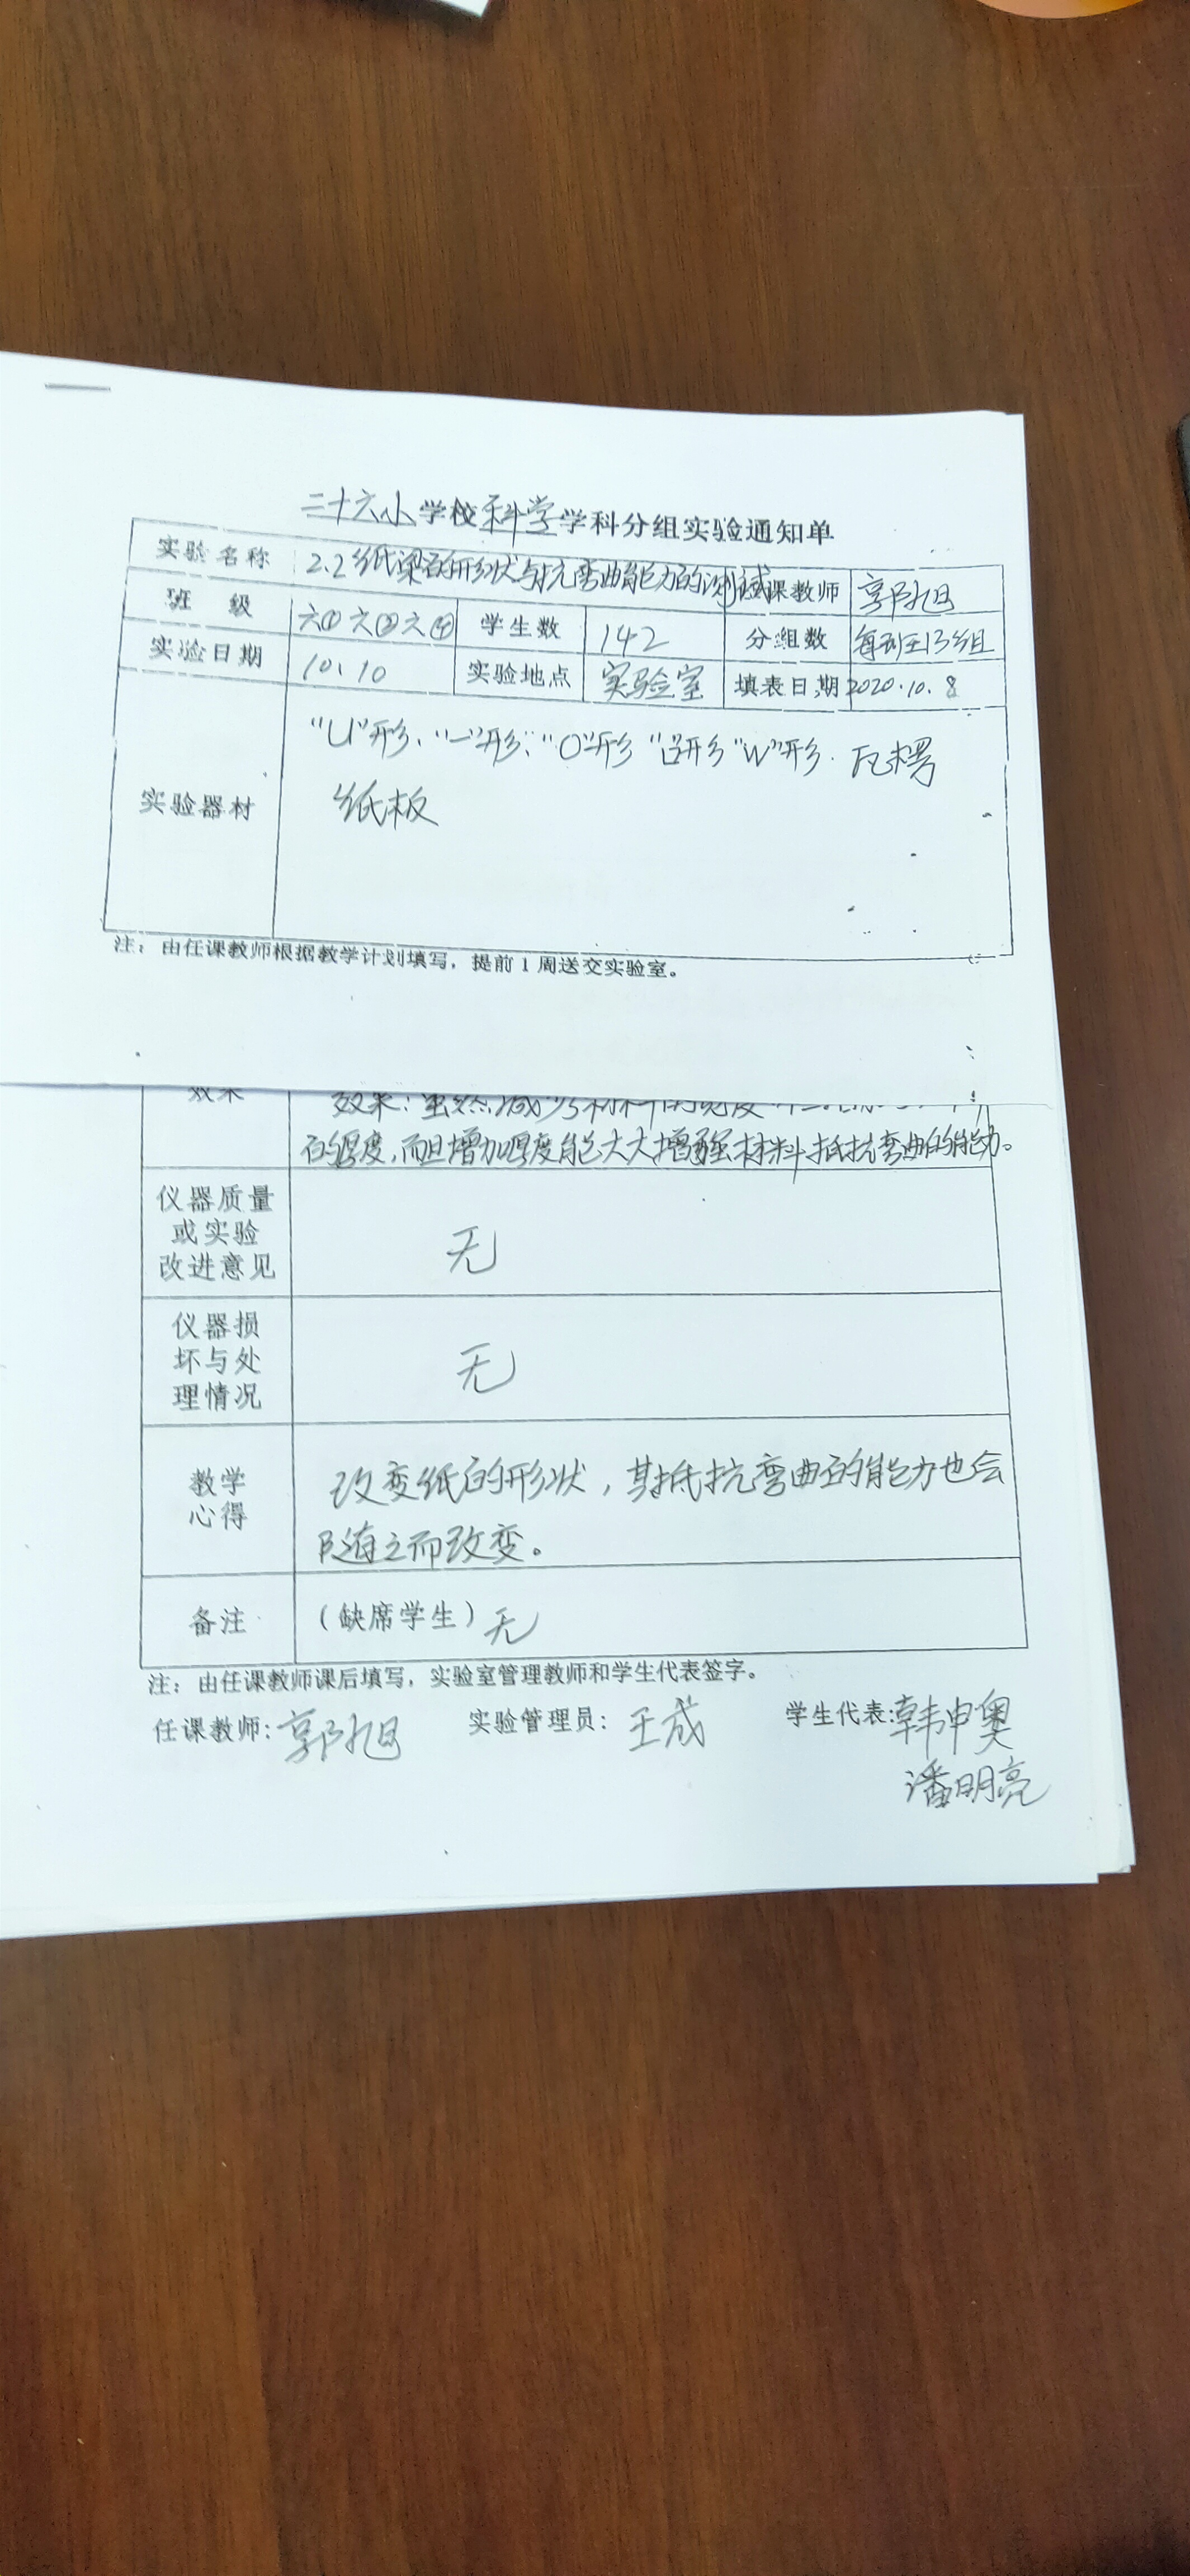 二十六小学校科学学科分组实验通知单
实验名称 2.2纸梁的形状与抗弯曲能力的测试 任课教师 郭旭
班 级 六① 六② 六④ 学生数 142 分组数 每班13组
实验日期 10.10 实验地点 实验室 填表日期 2020.10.8
实验器材 “U”形、“一”形、“O”形 “口”形 “W”形. 瓦楞
纸板
注：由任课教师根据教学计划填写，提前1周送交实验室。
效果 效果：虽然减少材料的宽度
的厚度，而且增加厚度能大大增强材料抵抗弯曲的能力。
仪器质量
或实验
改进意见
无
仪器损
坏与处
理情况
无
教学
心得
改变纸的形状，其抵抗弯曲的能力也会
随之而改变。
备注 （缺席学生）无
注：由任课教师课后填写，实验室管理教师和学生代表签字。
任课教师：郭旭 实验管理员：王成 学生代表：韩申奥
潘明亮